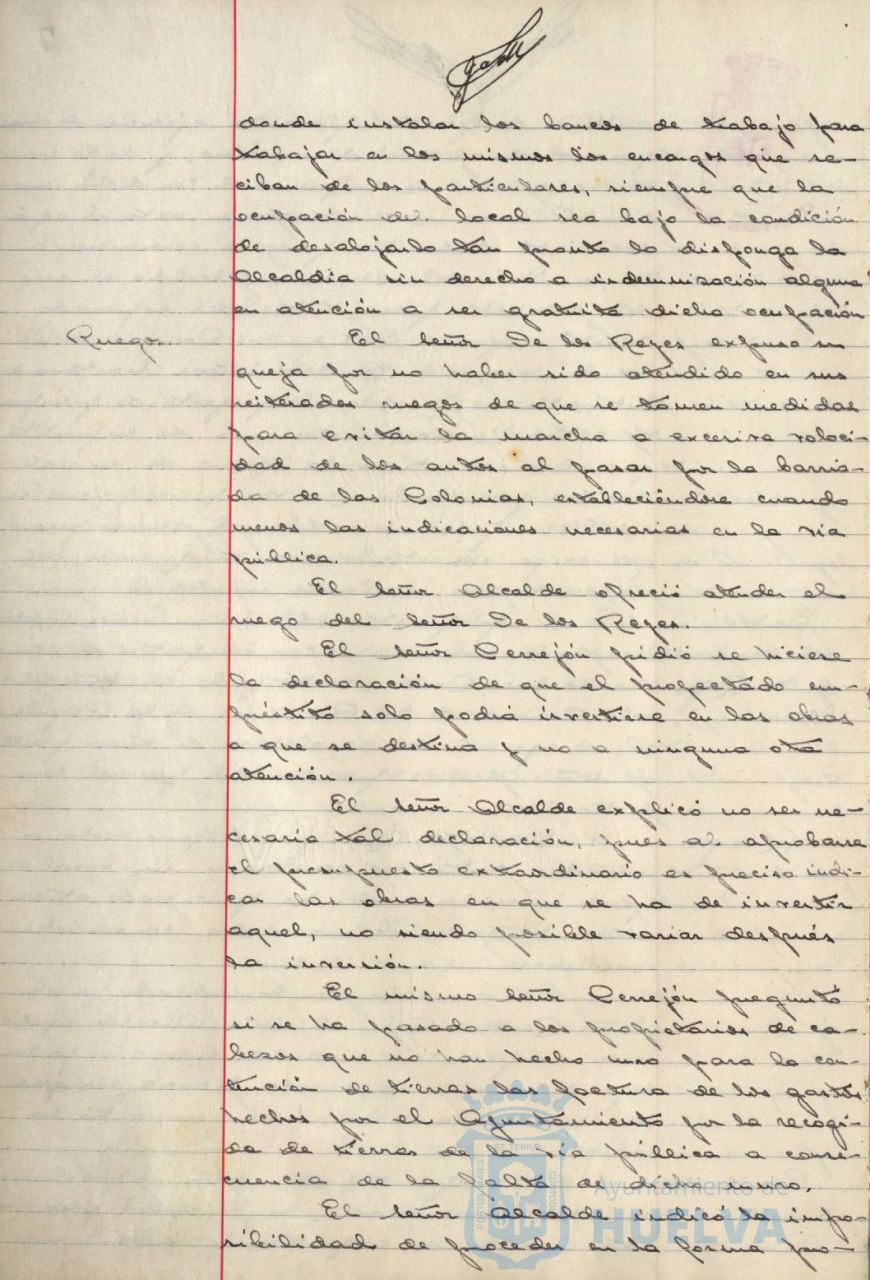 donde instalar los bancos de trabajo para
trabajar en los mismos los encargos que re-
ciban de los particulares, siempre que la
ocupación del local sea bajo la condición
de desalojarlo tan pronto lo disponga la
Alcaldía sin derecho a indemnización alguna
en atención a ser gratuita dicha ocupación
Ruegos.
El señor De los Reyes expuso su
queja por no haber sido atendido en sus
reiterados ruegos de que se tomen medidas
para evitar la marcha a excesiva veloci-
dad de los autos al pasar por la barria-
da de las Colonias, estableciéndose cuando
menos las indicaciones necesarias en la vía
pública.
El señor Alcalde ofreció atender el
ruego del señor De los Reyes.
El señor Cerrejón pidió se hiciese
la declaración de que el proyectado em-
préstito solo podrá invertirse en las obras
a que se destina y no a ninguna otra
atención.
El señor Alcalde explicó no ser ne-
cesaria tal declaración, pues al aprobarse
el presupuesto extraordinario es preciso indi-
car las obras en que se ha de invertir
aquel, no siendo posible variar después
la inversión.
El mismo señor Cerrejón preguntó
si se ha pasado a los propietarios de ca-
bezos que no han hecho muro para la con-
tención de tierras las factura de los gastos
hechos por el Ayuntamiento por la recogi-
da de tierras de la vía pública a conse-
cuencia de la falta de dicho muro.
El señor Alcalde indicó la impo-
sibilidad de proceder en la forma pro-
Ayuntamiento de
HUELVA